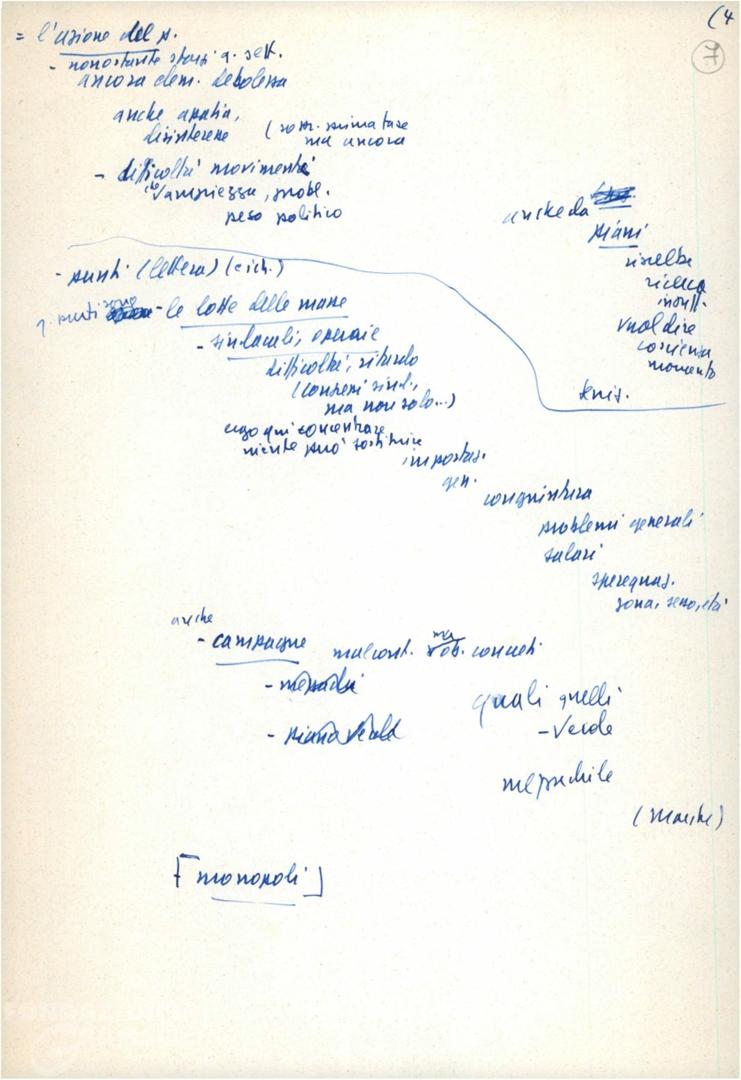 (4
7.
= l'azione del p.
- nonostante sforzi q. sett.
ancora elem. debolezza
anche apatia,
disinteresse (sopr. prima fase
ma ancora
- difficoltà movimento
ampiezza, probl.
peso politico
anche da
piani
scelte
ricerca
insuff.
vuol dire
coscienza
momento
- punti (lettera) (rich.)
q. punti sono - le lotte delle masse
- sindacali, operaie
difficoltà, ritardo
(congressi sind.,
ma non solo...)
ergo qui concentrare
niente può sostituire
importaz.
gen.
congiuntura
problemi generali
salari
sperequaz.
zona, sesso, età
anche
- campagne malcont. ma ob. concreti
- mezzadri
- piano verde
quali quelli
- Verde
mezzadrile
(Marche)
[monopoli]